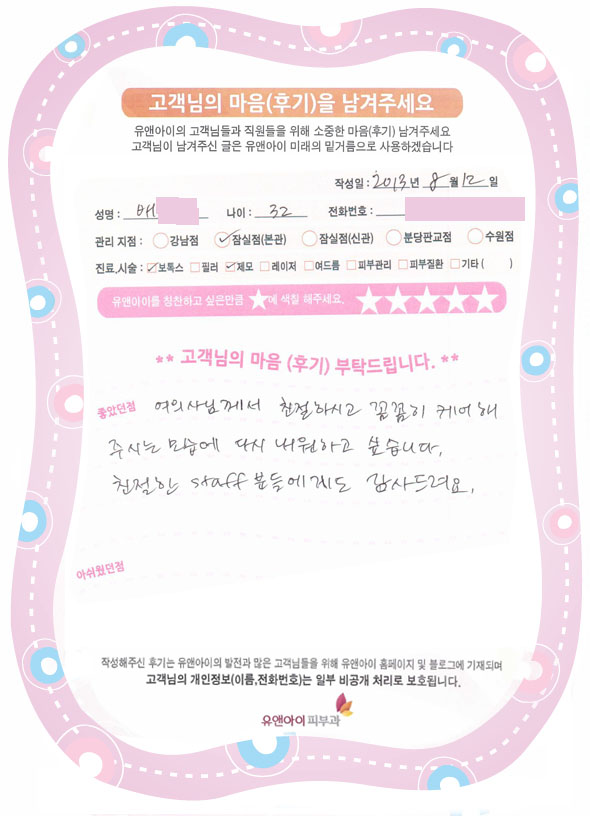 고객님의 마음(후기)을 남겨주세요
유앤아이의 고객님들과 직원들을 위해 소중한 마음(후기) 남겨주세요
고객님이 남겨주신 글은 유앤아이 미래의 밑거름으로 사용하겠습니다
작성일 : 2013년 8월 12일
성명 : 배 나이 : 32 전화번호 :
관리 지점 : 강남점 잠실점(본관) 잠실점(신관) 분당판교점 수원점
진료,시술 : 보톡스 필러 제모 레이저 여드름 피부관리 피부질환 기타 ( )
유앤아이를 칭찬하고 싶은만큼 ★에 색칠 해주세요. ★★★★★
** 고객님의 마음 (후기) 부탁드립니다. **
좋았던점 여의사님께서 친절하시고 꼼꼼히 케어해
주시는 모습에 다시 내원하고 싶습니다.
친절한 staff분들에게도 감사드려요.
아쉬웠던점
작성해주신 후기는 유앤아이의 발전과 많은 고객님들을 위해 유앤아이 홈페이지 및 블로그에 기재되며
고객님의 개인정보(이름,전화번호)는 일부 비공개 처리로 보호됩니다.
유앤아이피부과